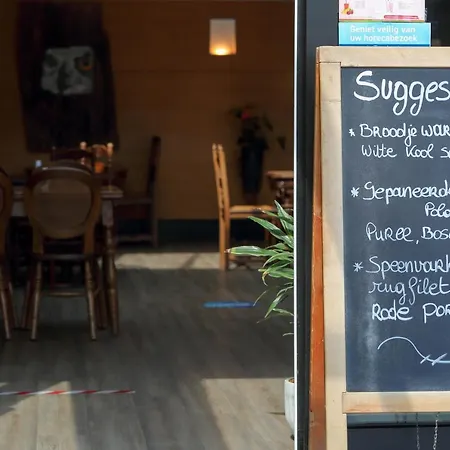 Geniet veilig van
uw horecabezoek
Sugges
* Broodje war
Witte Kool s
* Gepaneerd
Pole
Puree, Bos
* Speenvark
rugfilet
Rode por